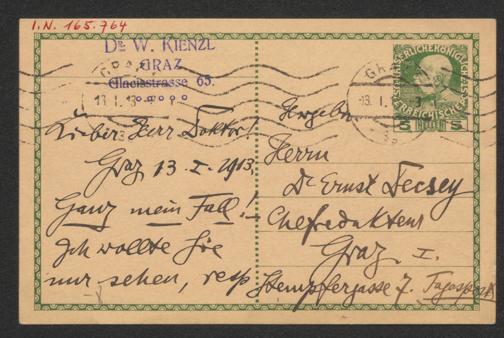 I.N. 165.764
Dr. W. KIENZL
GRAZ
Glacisstrasse 63.
13. I. 13
GRAZ
13. I. 13
5 5
Lieber Herr Doktor!
Graz 13. I. 1913,
Ganz mein Fall!
Ich wollte Sie
nur sehen, resp
Herrn
Dr Ernst Decsey
Chefredakteur
Graz I.
Stempfergasse 7. Tagespost